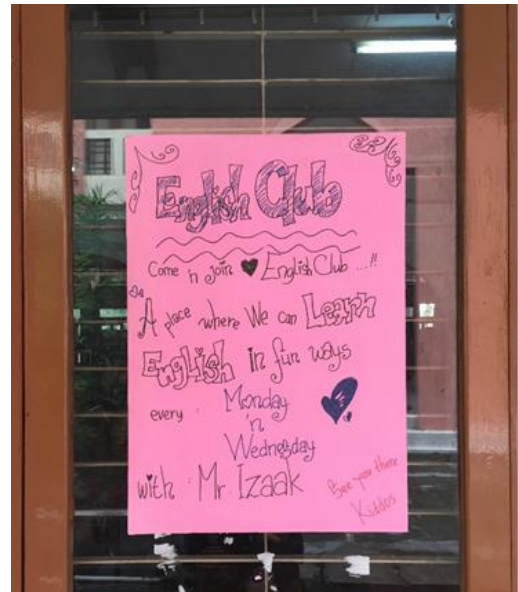 English Club
Come 'n join English Club ...!!
A place where We can Learn
English in fun ways
every : Monday
'n
Wednesday
with Mr. Izaak
See you there
Kiddos